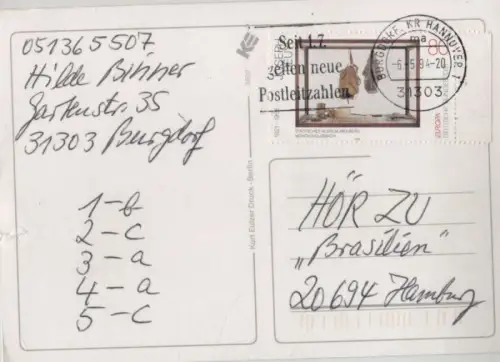 051365507
Hilde Binner
Gartenstr. 35
31303 Burgdorf
1-b
2-c
3-a
4-a
5-c
Karl Eulzer Druck · Berlin
Seit 1.7.
gelten neue
Postleitzahlen
BURGDORF, KR HANNOVER 1
ma
-6-5.94-20
31303
80
EUROPA
HÖR ZU
„Brasilien"
20694 Hamburg